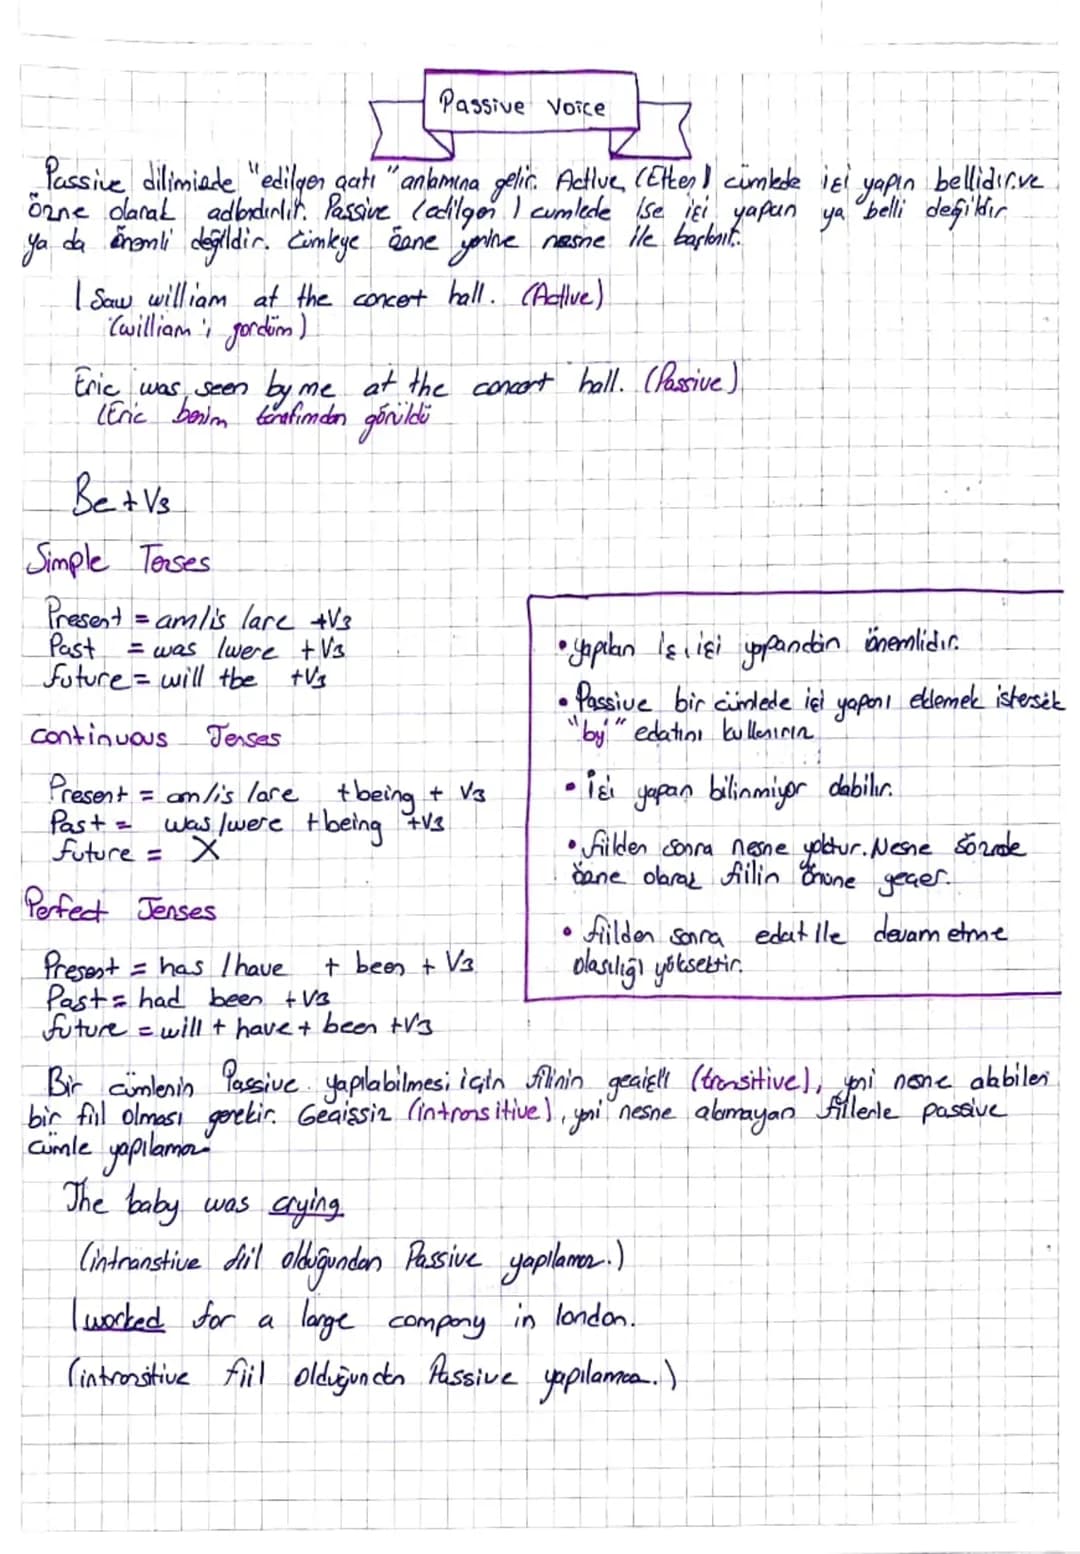 Passive Voice
Passive dilimizde "edilgen çatı" anlamına gelir. Active (Etken) cümlede işi yapan bellidir.ve
özne olarak adlandırılır. Passive (edilgen) cumlede ise işi yapan ya belli değildir
ya da önemli değildir. Cümleye özne yerine nesne ile başlanır.
I Saw william at the concert hall. (Active)
(william'ı gördüm)
Eric was seen by me at the concert hall. (Passive)
(Eric benim tarafımdan görüldü
Be + V3
Simple Tenses
Present = am/is/are +V3
Past = was/were +V3
future = will +be +V3
continuous Tenses
Present = am/is/are +being + V3
Past = was/were +being +V3
future = X
Perfect Tenses
Present = has/have + been + V3
Past = had been +V3
future = will + have + been +V3
• yapılan iş, işi yapandan önemlidir.
• Passive bir cümlede işi yapanı eklemek istersek
"by" edatını kullanırız
• İşi yapan bilinmiyor olabilir.
• fiilden sonra nesne yoktur. Nesne sözde
özne olarak fiilin önüne geçer.
• fiilden sonra edat ile devam etme
olasılığı yüksektir.
Bir cümlenin Passive yapılabilmesi için fiilinin geçişli (transitive), yani nesne alabilen
bir fiil olması gerekir. Geçişsiz (intransitive), yani nesne alamayan fiillerle passive
cümle yapılamaz
The baby was crying
(intranstive fiil olduğundan Passive yapılamaz.)
I worked for a large company in london.
(intransitive fiil olduğundan Passive yapılamaz.)